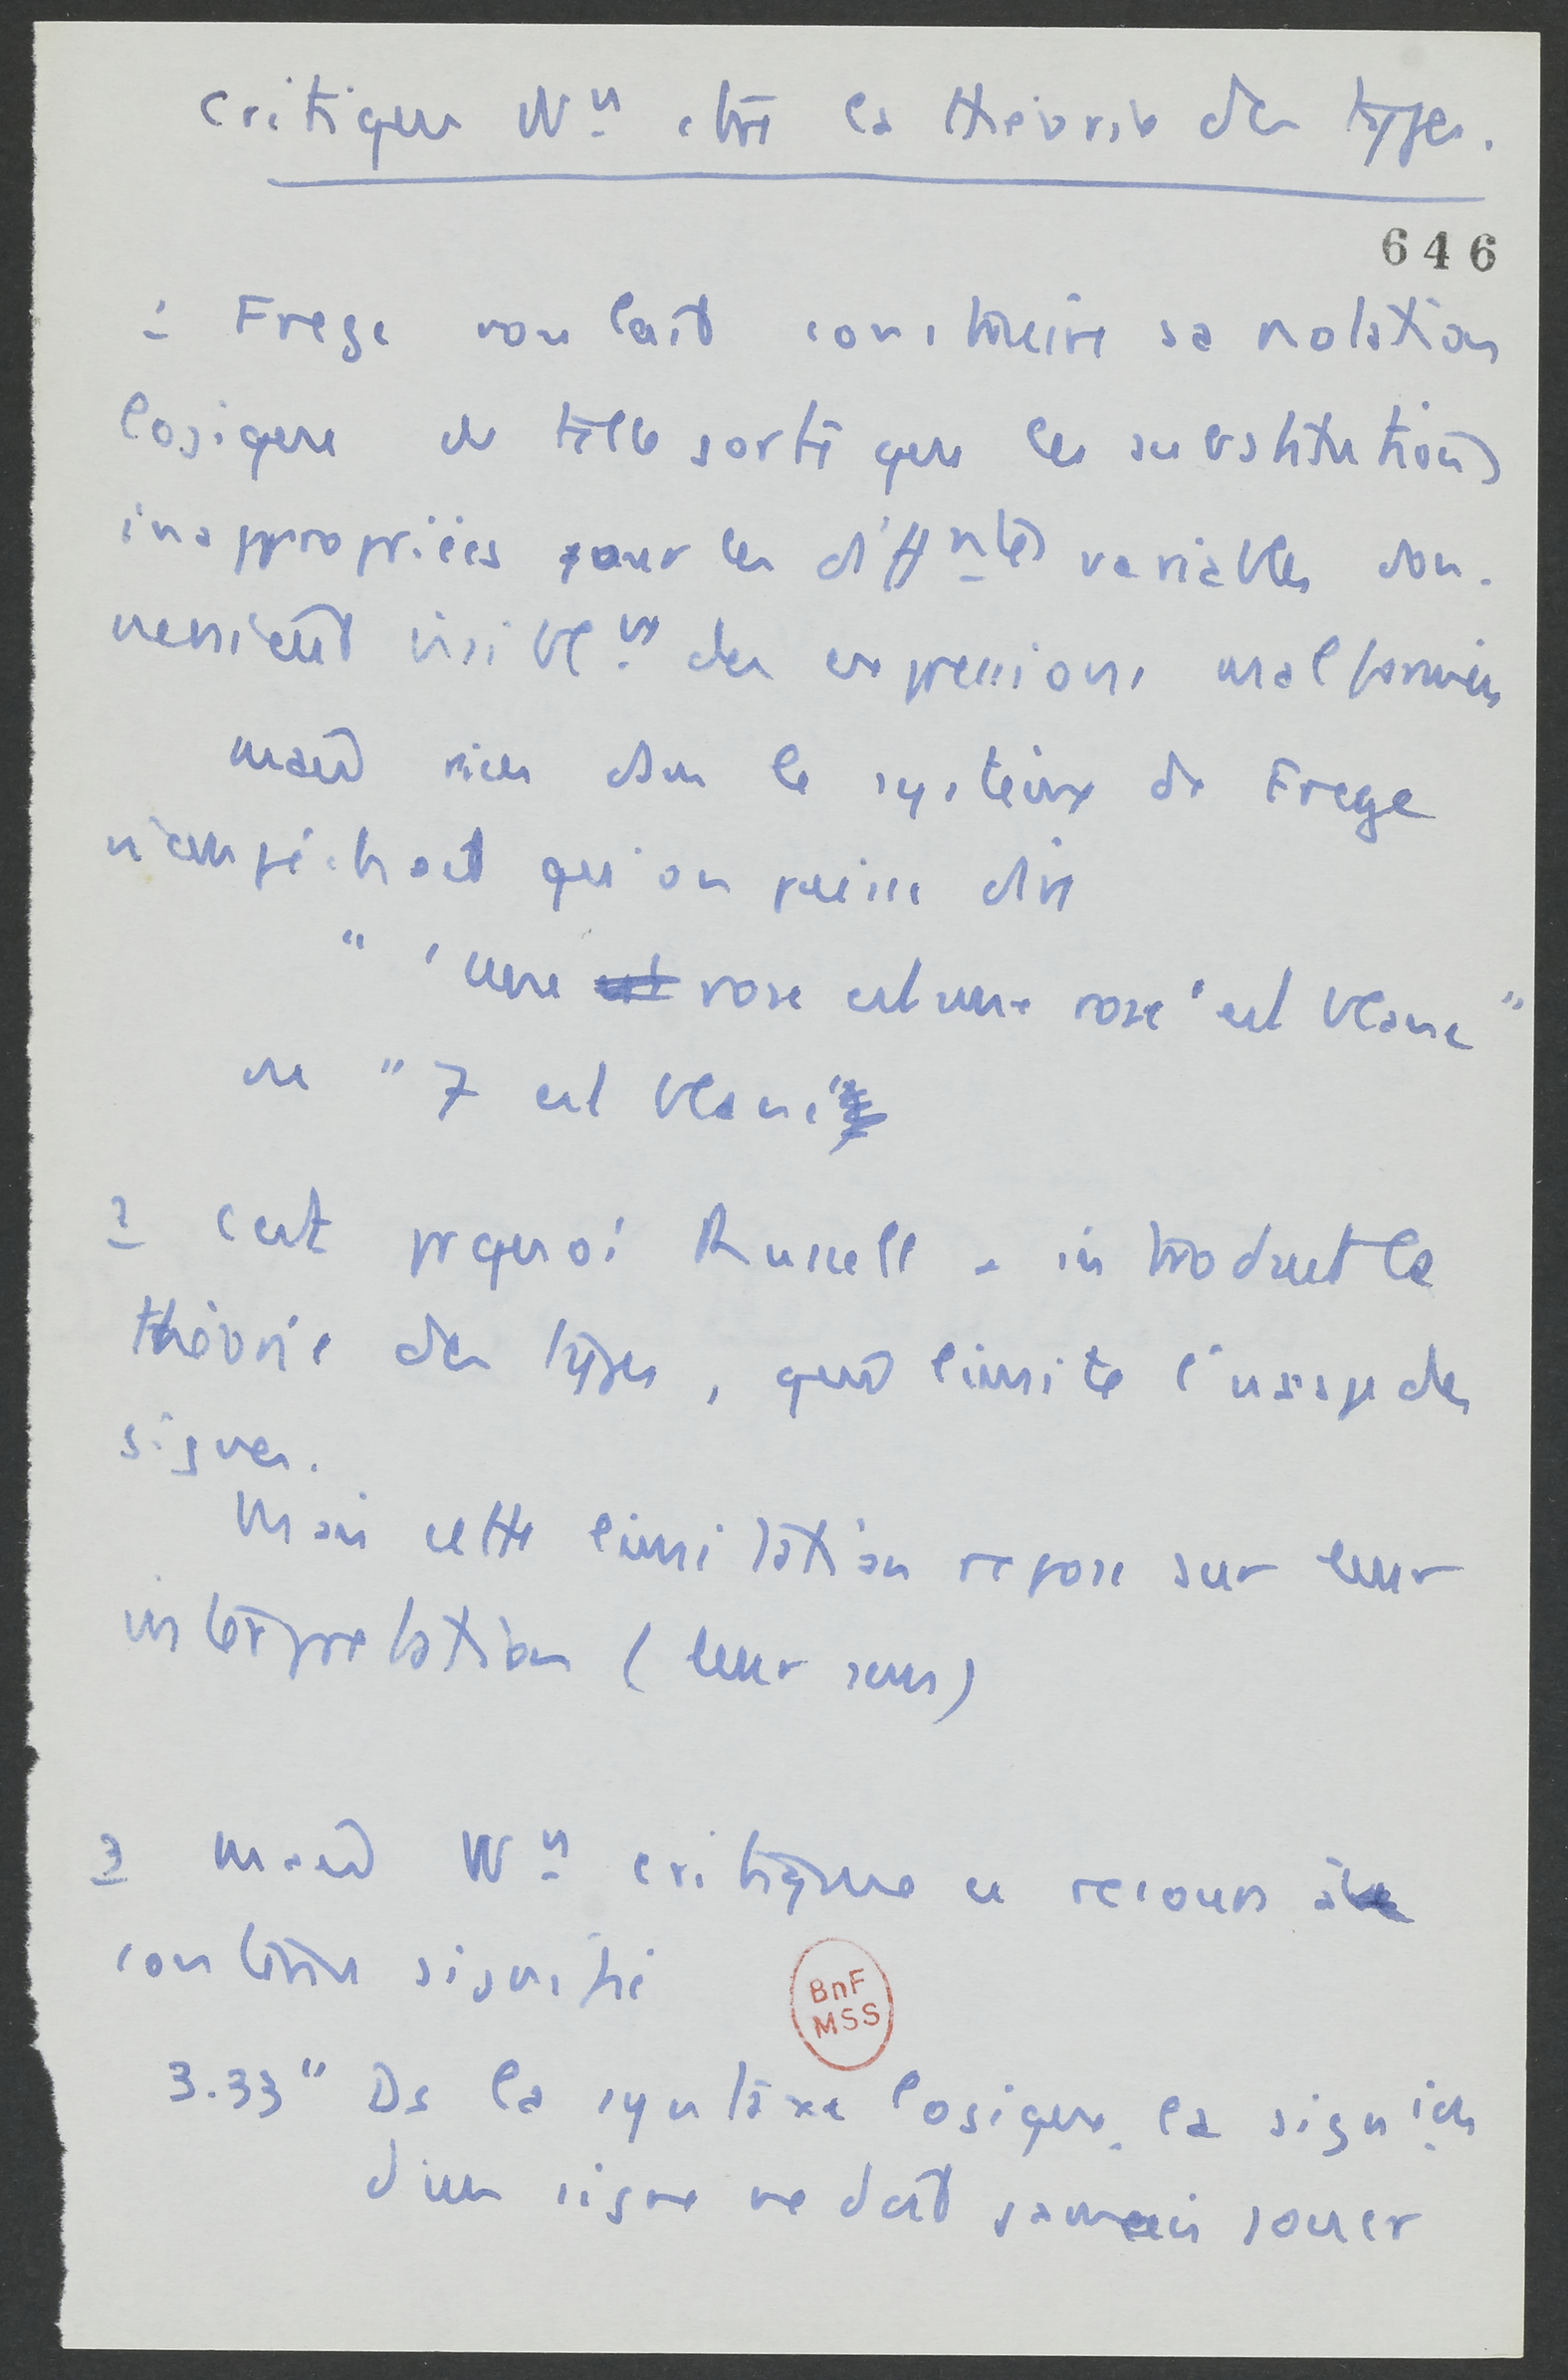 Critique Wn ctre la théorie des types.
646
1 Frege voulait construire sa notation
logique de telle sorte que les substitutions
inappropriées pour les diffntes variables don-
neraient visiblemt des expressions mal formées
mais rien dans le système de Frege
n'empêchait qu'on puisse dire
" 'une est rose est une rose' est blanc "
ou " 7 est blanc "
2 C'est prquoi Russell a introduit la
théorie des types, qui limite l'usage des
signes.
Mais cette limitation repose sur leur
interprétation (leur sens)
3 Mais Wn critique ce recours à
contenu signifié
BnF
MSS
3.33 " Ds la syntaxe logique, la signion
d'un signe ne doit jamais jouer